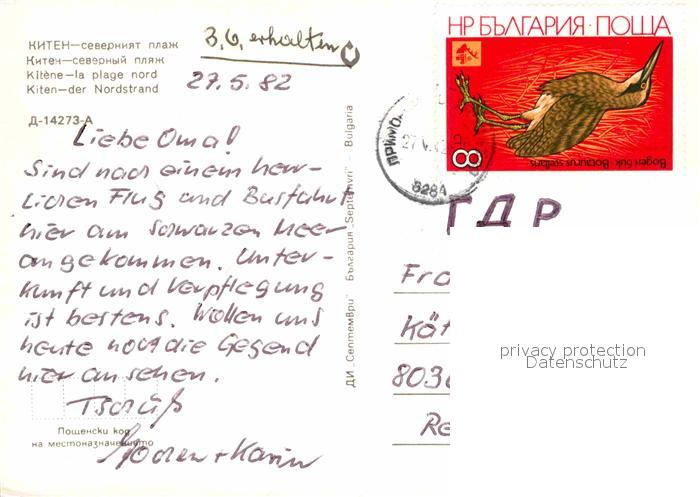 КИТЕН—северният плаж
Китен—северный пляж
Kitène—la plage nord
Kiten—der Nordstrand
Д-14273-А
3.6. erhalten
27.5.82
Liebe Oma!
Sind nach einem herr-
lichen Flug und Busfahrt
hier am Schwarzen Meer
angekommen. Unter-
kunft und Verpflegung
ist bestens. Wollen uns
heute noch die Gegend
hier ansehen.
Tschüß
Jochen + Karin
Пощенски код
на местоназначението
ДИ „Септември" България „Septemvri" - Bulgaria
НР БЪЛГАРИЯ · ПОЩА
8
Воден бик · Botaurus stellaris
8284
ГДР
Fra
Kät
8030
Re
privacy protection
Datenschutz